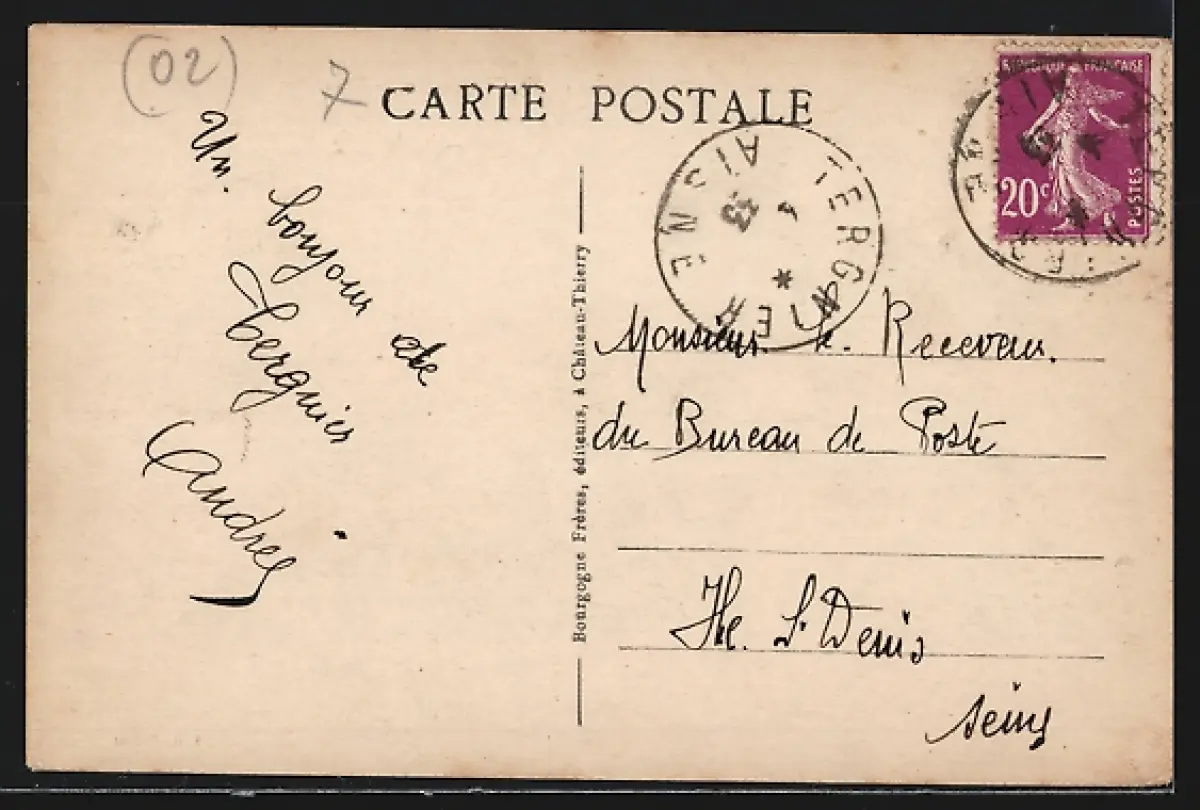 (02)
7
CARTE POSTALE
REPUBLIQUE FRANÇAISE
20c
POSTES
TERGNIER
AISNE
33
Un. bonjour de
Tergnier
Andrée
Bourgogne Frères, éditeurs, à Château-Thierry
Monsieur le. Receveur.
du Bureau de Poste
Ile. St Denis
Seine